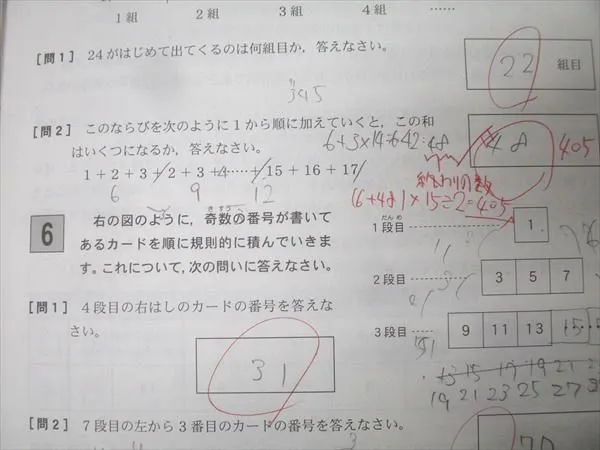 1組 2組 3組 4組 ……
[問1] 24がはじめて出てくるのは何組目か，答えなさい。
22 組目
345
[問2] このならびを次のように1から順に加えていくと，この和
はいくつになるか，答えなさい。
6+3×14=6+42=48
48 405
1+2+3+2+3+4……+15+16+17
6 9 12
終わりの数
(6+48)×15÷2=405
6 右の図のように，奇数の番号が書いて
あるカードを順に規則的に積んでいきま
す。これについて，次の問いに答えなさい。
きすう
だんめ
1段目 1
2段目 …… 3 5 7
3段目 …… 9 11 13 15
[問1] 4段目の右はしのカードの番号を答えな
さい。
31
19 21 23 25 27
[問2] 7段目の左から3番目のカードの番号を答えなさい。